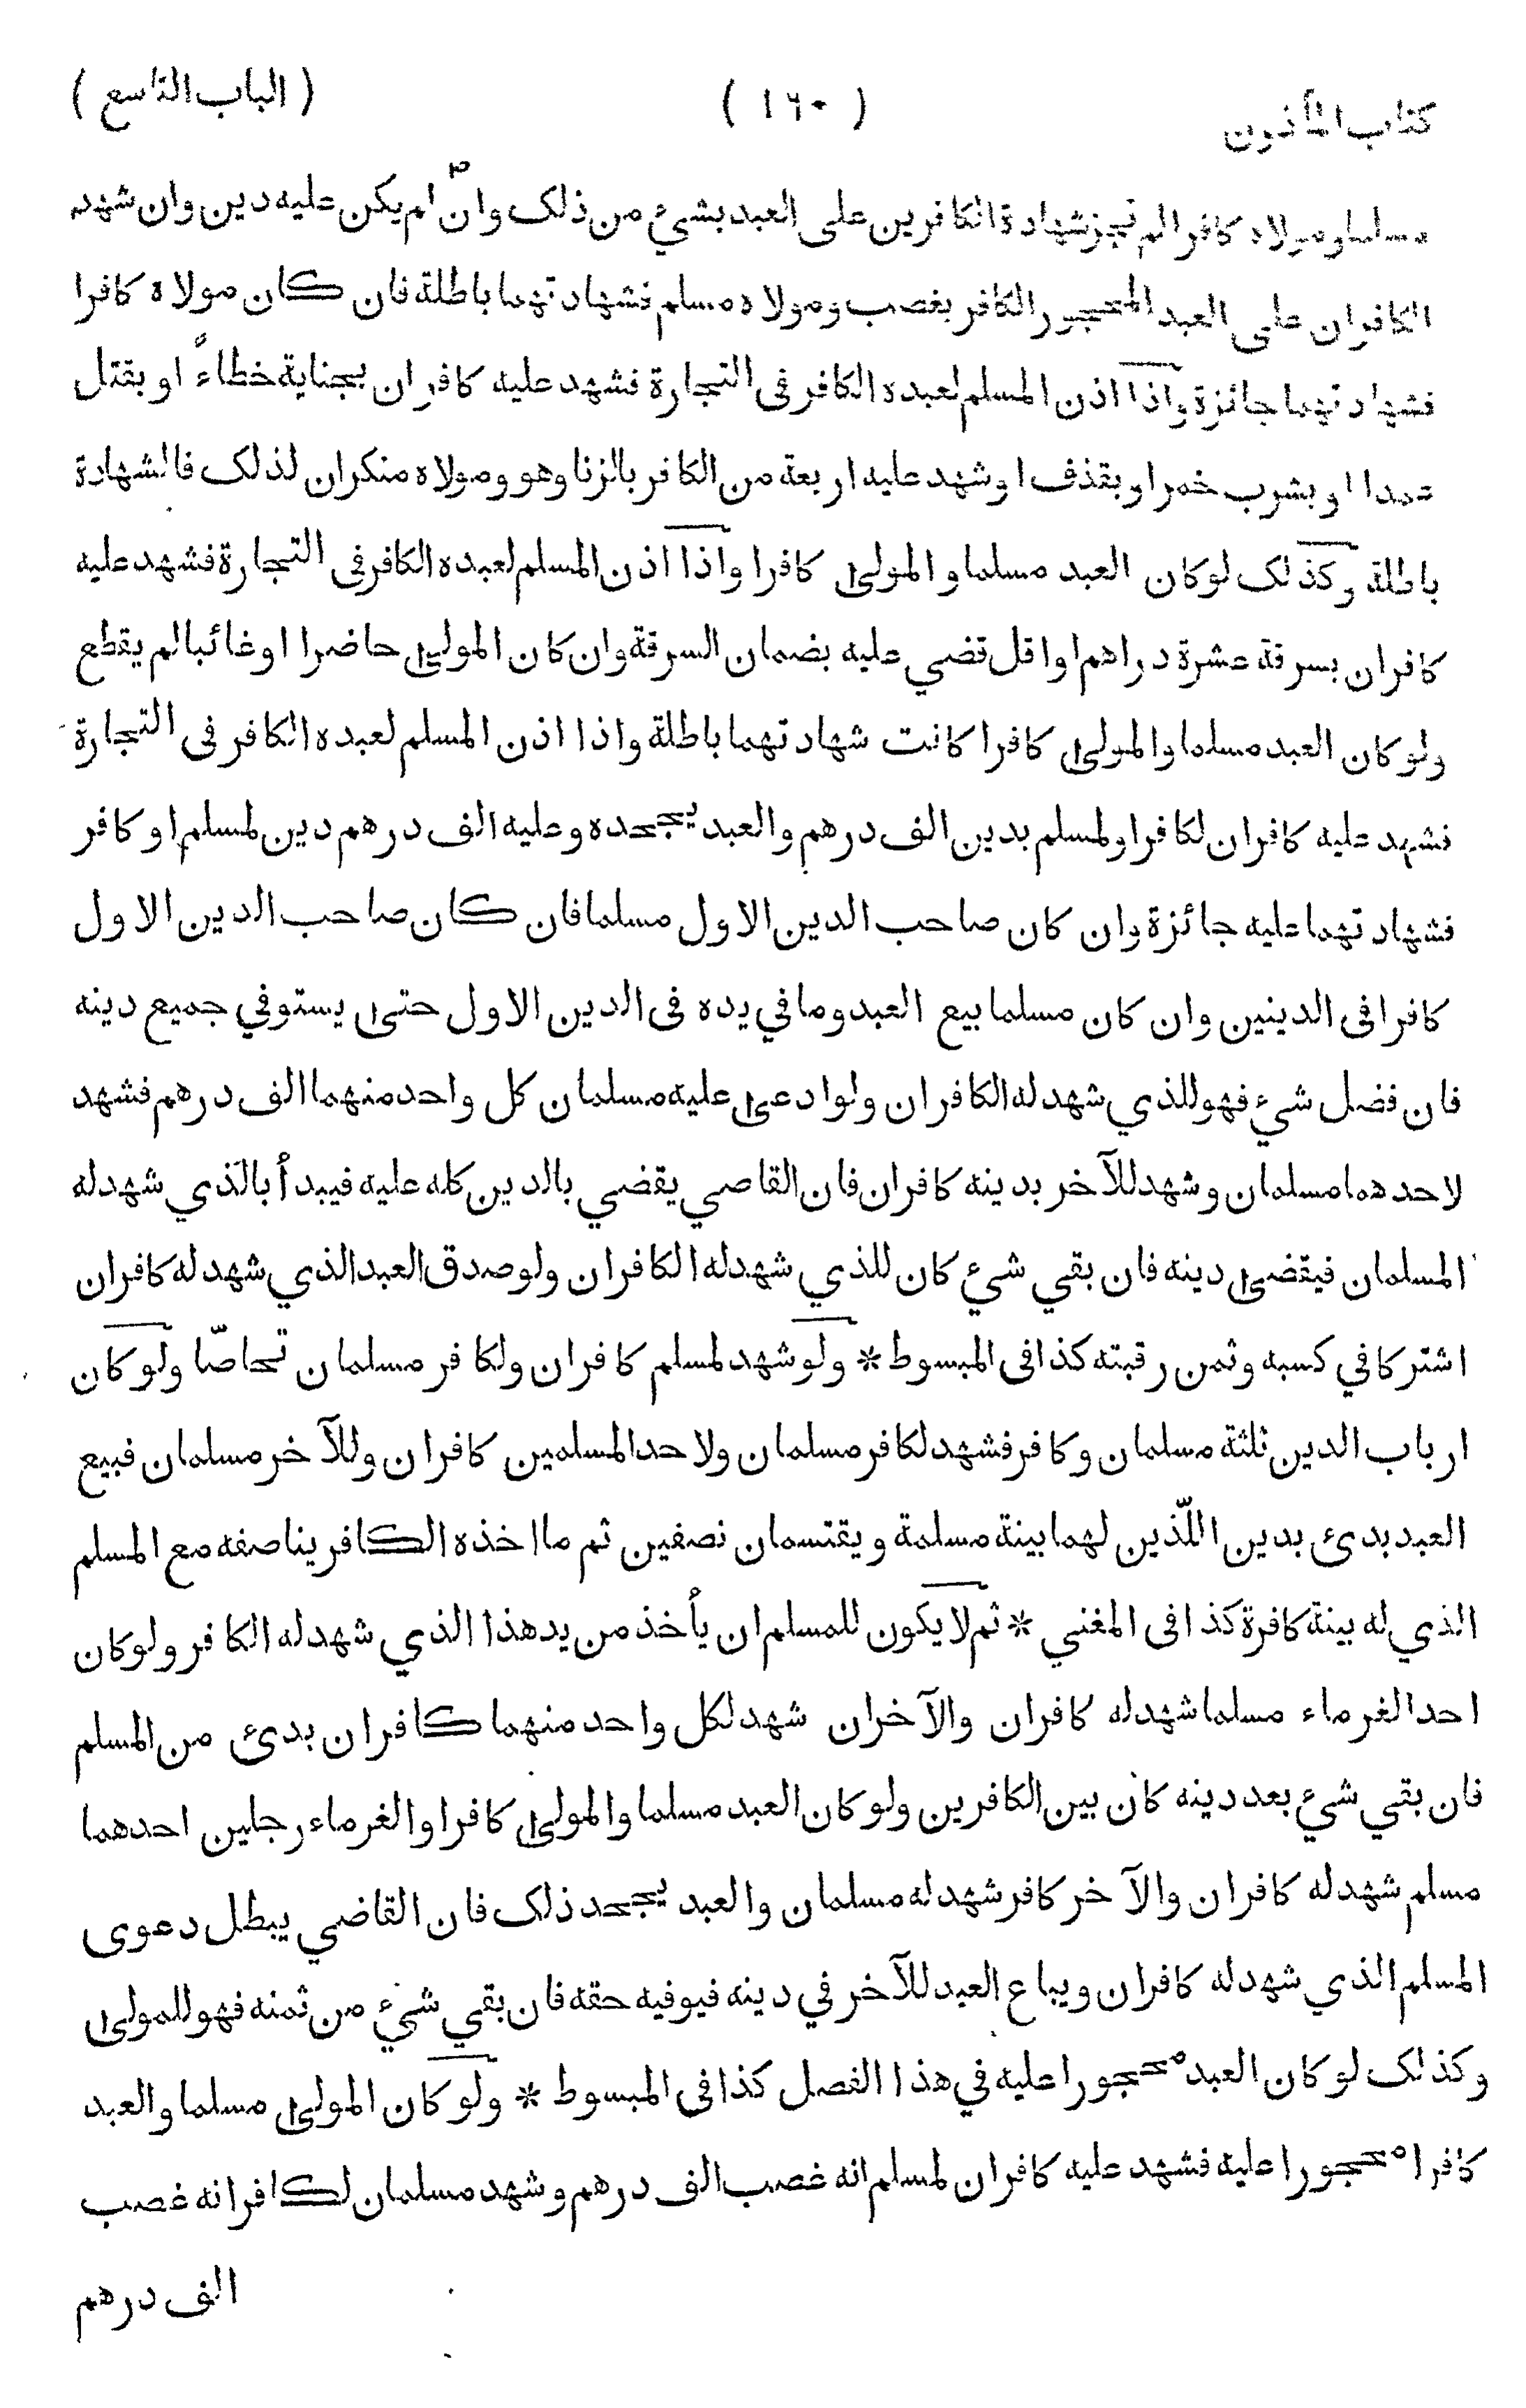 كتاب المأذون ( ١٦٠ ) ( الباب التاسع )
مسلما ومولاه كافرا لم تجز شهادة الكافرين على العبد بشيء من ذلك وان لم يكن عليه دين وان شهد
الكافران على العبد المحجور الكافر بغصب ومولاه مسلم فشهادتهما باطلة فان كان مولاه كافرا
فشهادتهما جائزة واذا اذن المسلم لعبده الكافر فى التجارة فشهد عليه كافران بجناية خطاءً او بقتل
عمدا او بشرب خمر او بقذف او شهد عليه اربعة من الكافر بالزنا وهو ومولاه منكران لذلك فالشهادة
باطلة وكذلك لو كان العبد مسلما والمولى كافرا واذا اذن المسلم لعبده الكافر فى التجارة فشهد عليه
كافران بسرقة عشرة دراهم او اقل قضي عليه بضمان السرقة وان كان المولى حاضرا او غائبا لم يقطع
ولو كان العبد مسلما والمولى كافرا كانت شهادتهما باطلة واذا اذن المسلم لعبده الكافر فى التجارة
فشهد عليه كافران لكافر او لمسلم بدين الف درهم والعبد يجحده وعليه الف درهم دين لمسلم او كافر
فشهادتهما عليه جائزة وان كان صاحب الدين الاول مسلما فان كان صاحب الدين الاول
كافرا فى الدينين وان كان مسلما بيع العبد وما في يده فى الدين الاول حتى يستوفي جميع دينه
فان فضل شيء فهو للذي شهد له الكافران ولو ادعى عليه مسلمان كل واحد منهما الف درهم فشهد
لاحدهما مسلمان وشهد للآخر بدينه كافران فان القاصي يقضي بالدين كله عليه فيبدأ بالذي شهد له
المسلمان فيقضى دينه فان بقي شيء كان للذي شهد له الكافران ولو صدق العبد الذي شهد له كافران
اشتركا في كسبه وثمن رقبته كذا فى المبسوط * ولو شهد لمسلم كافران ولكافر مسلمان تحاصّا ولو كان
ارباب الدين ثلثة مسلمان وكافر فشهد لكافر مسلمان ولاحد المسلمين كافران وللآخر مسلمان فبيع
العبد بدئ بدين اللّذين لهما بينة مسلمة ويقتسمان نصفين ثم ما اخذه الكافر يناصفه مع المسلم
الذي له بينة كافرة كذا فى المغني * ثم لا يكون للمسلم ان يأخذ من يد هذا الذي شهد له الكافر ولو كان
احد الغرماء مسلما شهد له كافران والآخران شهد لكل واحد منهما كافران بدئ من المسلم
فان بقي شيء بعد دينه كان بين الكافرين ولو كان العبد مسلما والمولى كافرا والغرماء رجلين احدهما
مسلم شهد له كافران والآخر كافر شهد له مسلمان والعبد يجحد ذلك فان القاضي يبطل دعوى
المسلم الذي شهد له كافران ويباع العبد للآخر في دينه فيوفيه حقه فان بقي شيء من ثمنه فهو للمولى
وكذلك لو كان العبد محجورا عليه في هذا الفصل كذا فى المبسوط * ولو كان المولى مسلما والعبد
كافرا محجورا عليه فشهد عليه كافران لمسلم انه غصب الف درهم وشهد مسلمان لكافر انه غصب
الف درهم